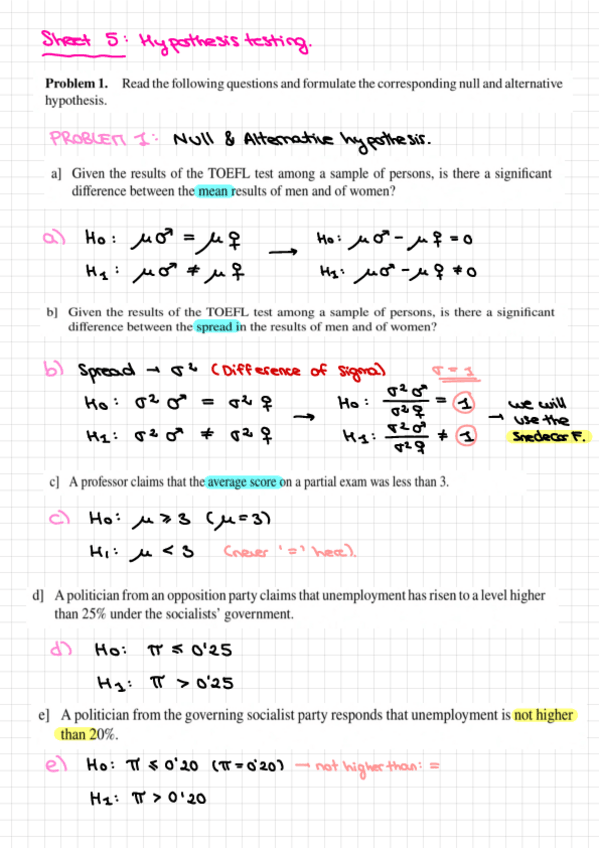 Sheet 5: Hypothesis testing.
Problem 1. Read the following questions and formulate the corresponding null and alternative
hypothesis.
PROBLEM 1: Null & Alternative hypothesis.
a] Given the results of the TOEFL test among a sample of persons, is there a significant
difference between the mean results of men and of women?
a) H₀: μ♂ = μ♀ → H₀: μ♂ - μ♀ = 0
H₁: μ♂ ≠ μ♀ H₁: μ♂ - μ♀ ≠ 0
b] Given the results of the TOEFL test among a sample of persons, is there a significant
difference between the spread in the results of men and of women?
b) Spread → σ² (Difference of sigma) σ = 1
H₀: σ²♂ = σ²♀ → H₀: σ²♂/σ²♀ = 1 → we will use the Snedecor F.
H₁: σ²♂ ≠ σ²♀ H₁: σ²♂/σ²♀ ≠ 1
c] A professor claims that the average score on a partial exam was less than 3.
c) H₀: μ ≥ 3 (μ=3)
H₁: μ < 3 (never '=' here).
d] A politician from an opposition party claims that unemployment has risen to a level higher
than 25% under the socialists' government.
d) H₀: π ≤ 0'25
H₁: π > 0'25
e] A politician from the governing socialist party responds that unemployment is not higher
than 20%.
e) H₀: π ≤ 0'20 (π = 0'20) → not higher than: =
H₁: π > 0'20